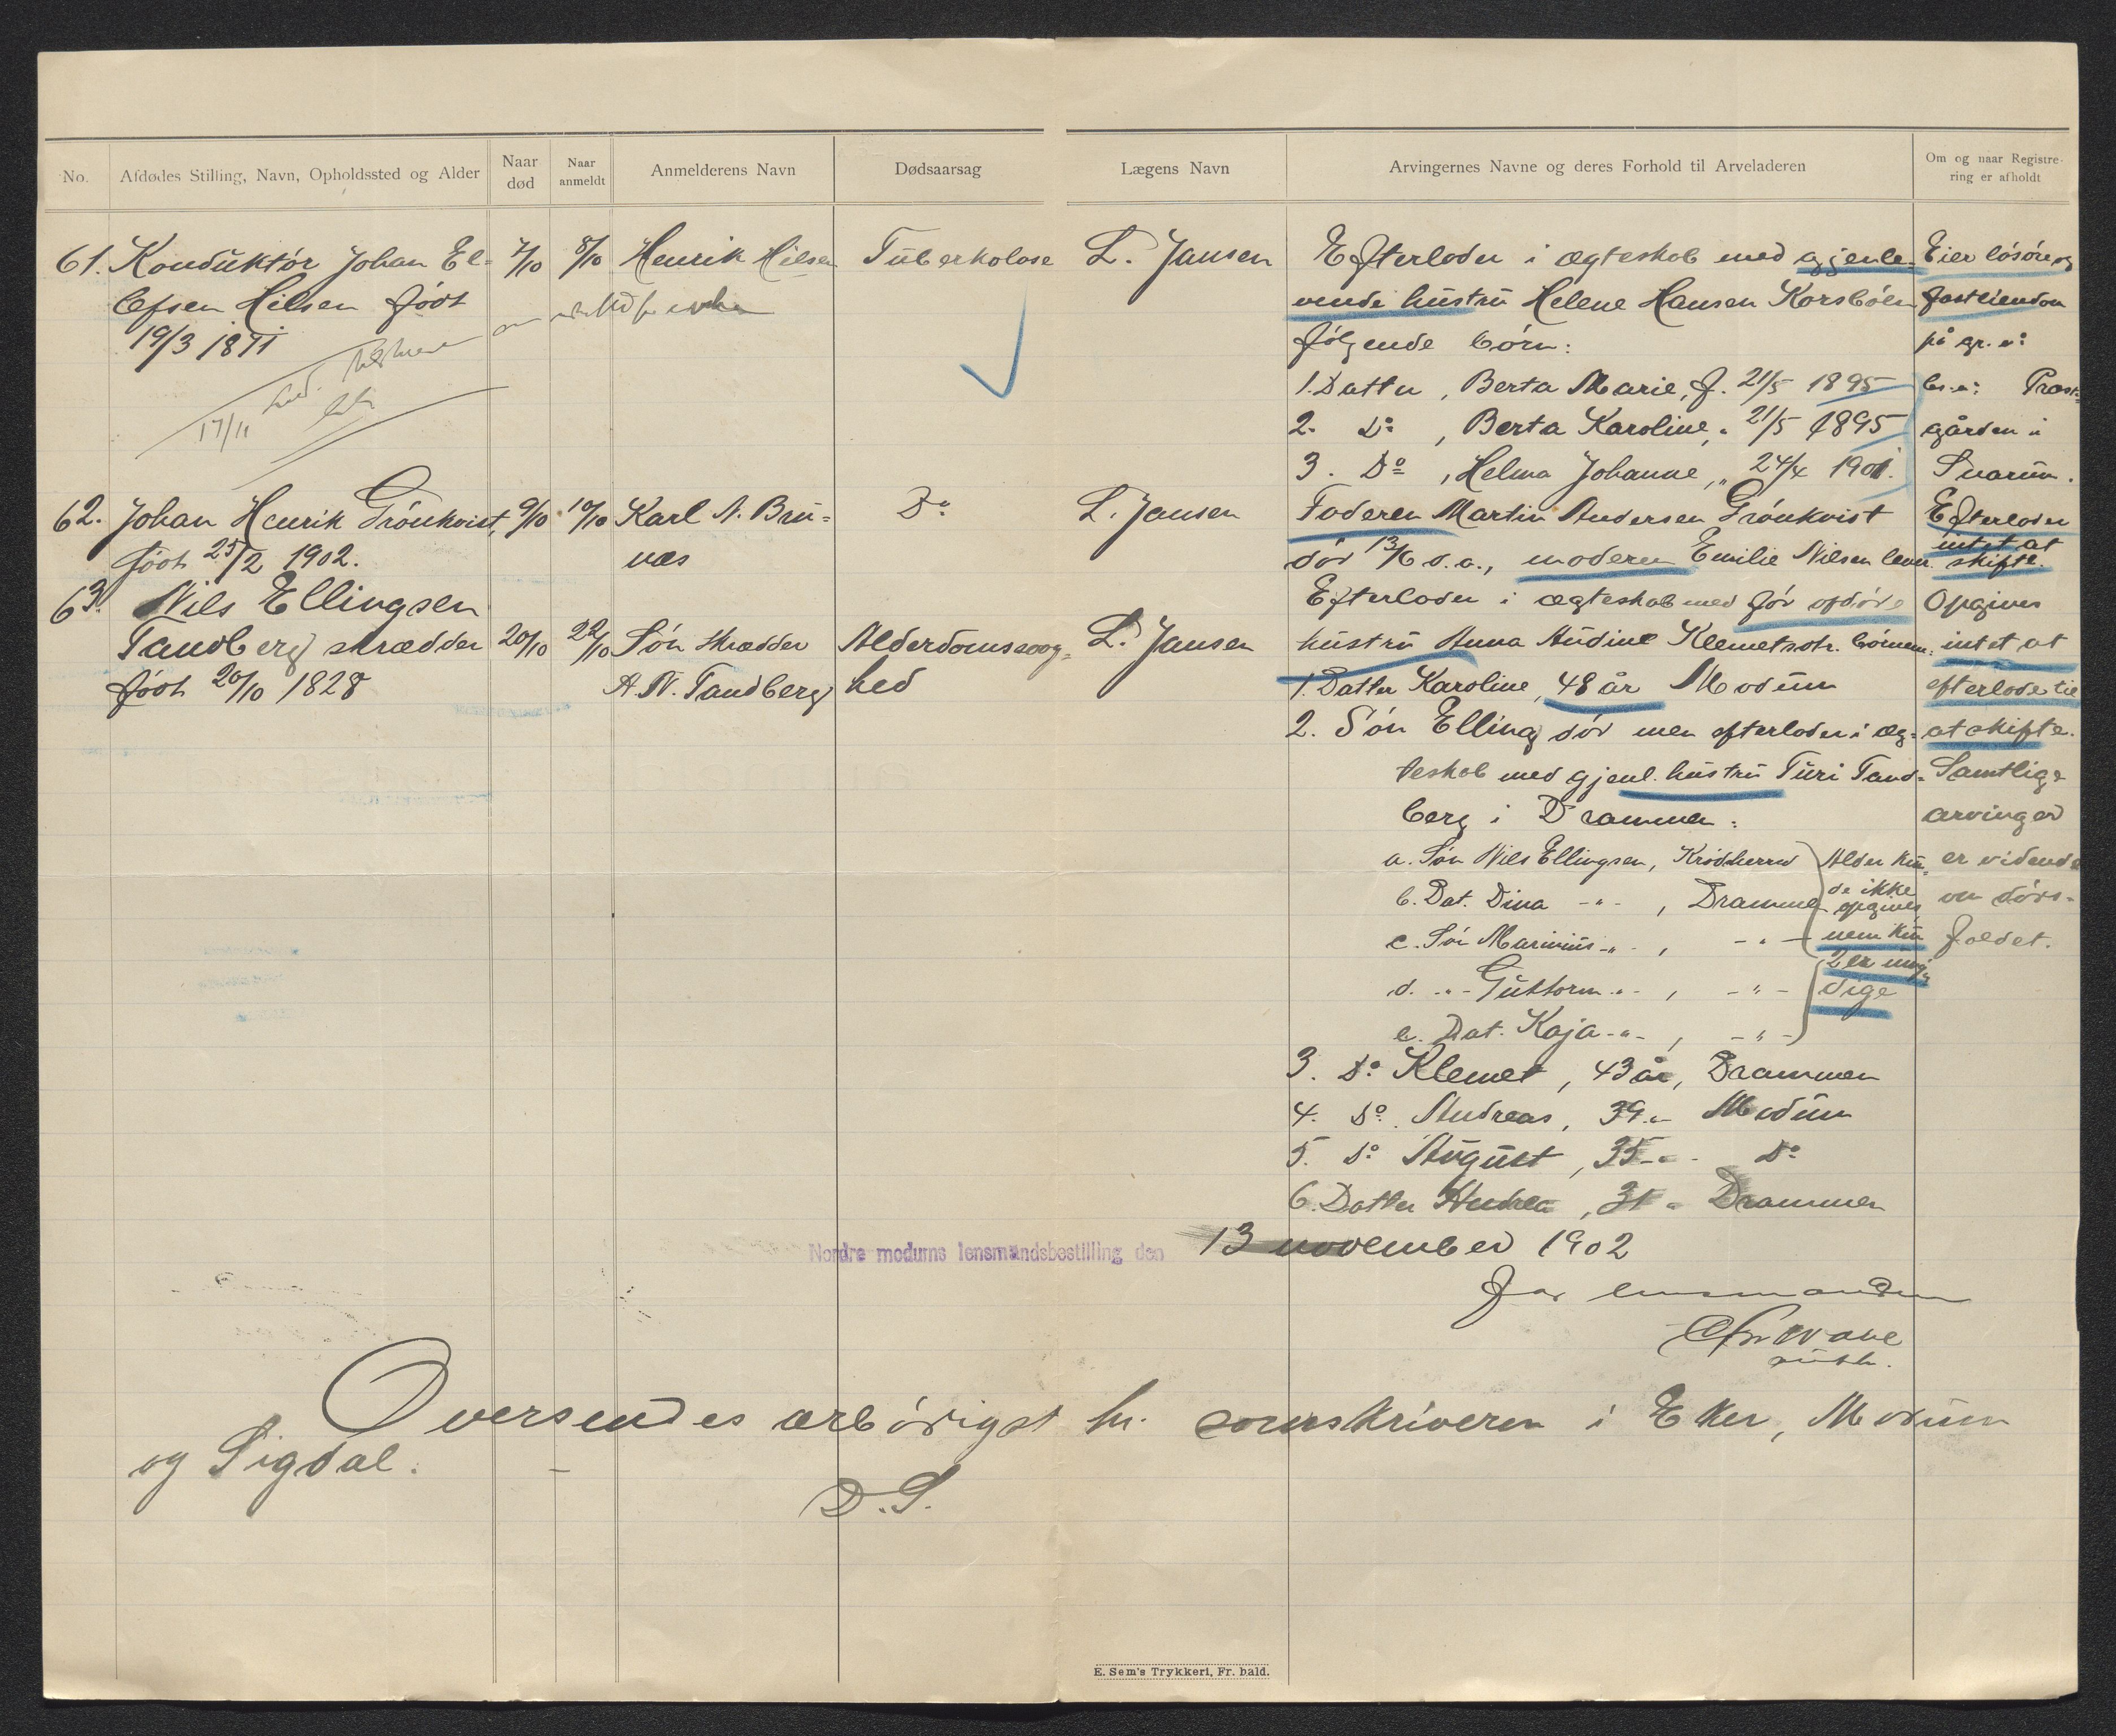 No.
Afdødes Stilling, Navn, Opholdssted og Alder
Naar død
Naar anmeldt
Anmelderens Navn
Dødsaarsag
Lægens Navn
Arvingernes Navne og deres Forhold til Arveladeren
Om og naar Registrering er afholdt
61. Konduktör Johan El=
lefsen Hilsen född
19/3 1871
7/10
8/10
Henrik Hilsen
Tuberkolose
L. Jansen
Efterlader i ægteskab med gjenle=
vende hustru Helene Hansen Korsbøen
følgende børn:
1. Datter, Berta Marie, f. 21/5 1895
2. Do, Berta Karoline, " 21/5 1895
3. Do, Helma Johanne, " 24/4 1901.
Eier løsøre og
fast eiendom
på gr. n:
br. n: Præst=
gården i
Snarum.
17/11
62. Johan Henrik Grönkvist,
født 25/2 1902.
9/10
10/10
Karl A. Bru=
næs
Do
L. Jansen
Faderen Martin Andersen Grönkvist
död 13/6 d.a., moderen Emilie Nilsen lever.
Efterlader
intet at
skifte.
63. Nils Ellingsen
Tandberg skrædder
født 20/10 1828
20/10
22/10
Søn skrædder
A. N. Tandberg
Alderdomssvag=
hed
L. Jansen
Efterlader i ægteskab med før afdøde
hustru Anna Audine Klemetsdtr. børnene:
1. Datter Karoline, 48 år Modum
2. Søn Elling død men efterlader i æg=
teskab med gjenl. hustru Turi Tand=
berg i Drammen:
a. Søn Nils Ellingsen, Krødsherred
b. Dat. Dina -"- , Drammen
c. Søn Marinius -"- , -"-
d. -"- Guttorm -"- , -"-
e. Dat. Kaja -"- , -"-
Alder kun=
de ikke
opgives
men kun
2 er myn=
dige
3. Do Klemet, 43 år, Drammen
4. Do Andreas, 39 -"- Modum
5. Do August, 35 -"- Do
6. Datter Andrea, 31 " Drammen
Opgives
intet at
efterlade til
at skifte.
Samtlige
arvinger
er vidende
om døds=
faldet.
Nordre modums lensmandsbestilling den 13 november 1902
For lensmanden
Oversendes ærbødigst hr. sorenskriveren i Eker, Modum
og Sigdal.
D.S.
E. Sem's Trykkeri, Fr. hald.